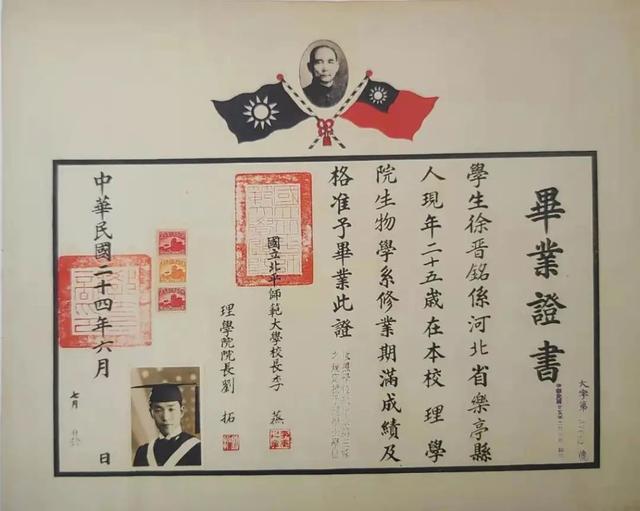 畢業證書
大字第
學生徐晋銘係河北省樂亭縣
人現年二十五歲在本校理學
院生物學系修業期滿成績及
格准予畢業此證
國立北平師範大學校長李蒸
理學院院長劉拓
中華民國二十四年六月
日
七月